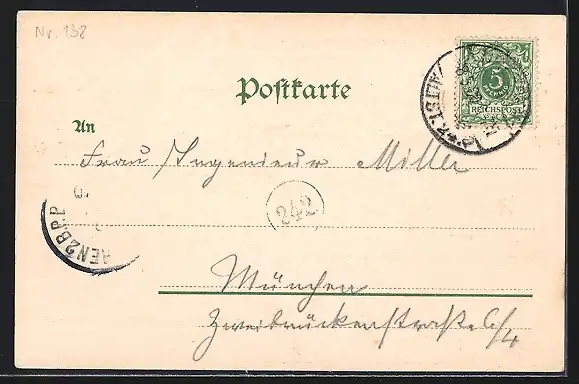 Nr. 138
5
REICHSPOST
Postkarte
An
Frau Ingenieur Miller
242
München
Zweibrückenstraße 6/4